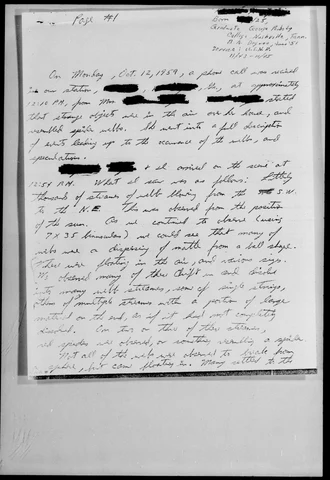 Page #1
Born /28,
Graduate, George Peabody
College Nashville, Tenn.
B.A. Degree, June 51
On Monday, Oct. 12, 1959, a phone call was received
in our station, , Mo, at approximately
12:10 P.M. from Mrs stated
that strange objects were in the air over her house, and
resembled spider webs. She went into a full description
of events leading up to the occurance of the webs, and
speculations.
& I arrived on the scene at
12:54 P.M. What I saw was as follows: Literally
thousands of streams of webs blowing from the S.W.
to the N.E. This was observed from the position
of the sun. As we continued to observe (using
7 X 35 binoculars) we could see that many of
webs were a dispersing of matter from a ball shape.
These were floating in the air, and various sizes.
We observed many of these drift in and dissolve
into many web streamers, some of single strings,
others of multiple streams with a portion of large
material on the end, as if it had not completely
dissolved. On two or three of these streams,
red spiders were observed, or something resembling a spider
Not all of the webs were observed to break from
a sphere, but came floating in. Many settled to the